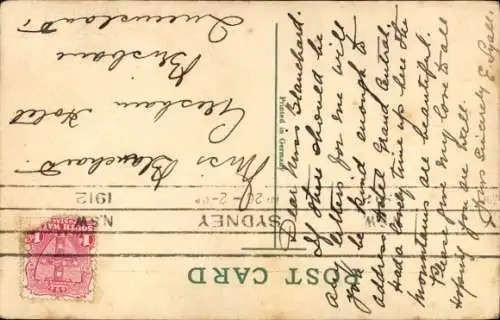 POST CARD
Dear Miss Blanchard.
If there should be
any letters for me will
you be kind enough to
address Hotel Grand Central.
Had a lovely time up here the
mountains are beautiful.
Please give my love to all
Hoping you are well.
Yours sincerely E.
Printed in Germany
Miss Blanchard
Gresham Hotel
Brisbane
Queensland.
N.S.W
1912
SYDNEY
2-
N.S.W
SOUTH WALES
POSTAGE